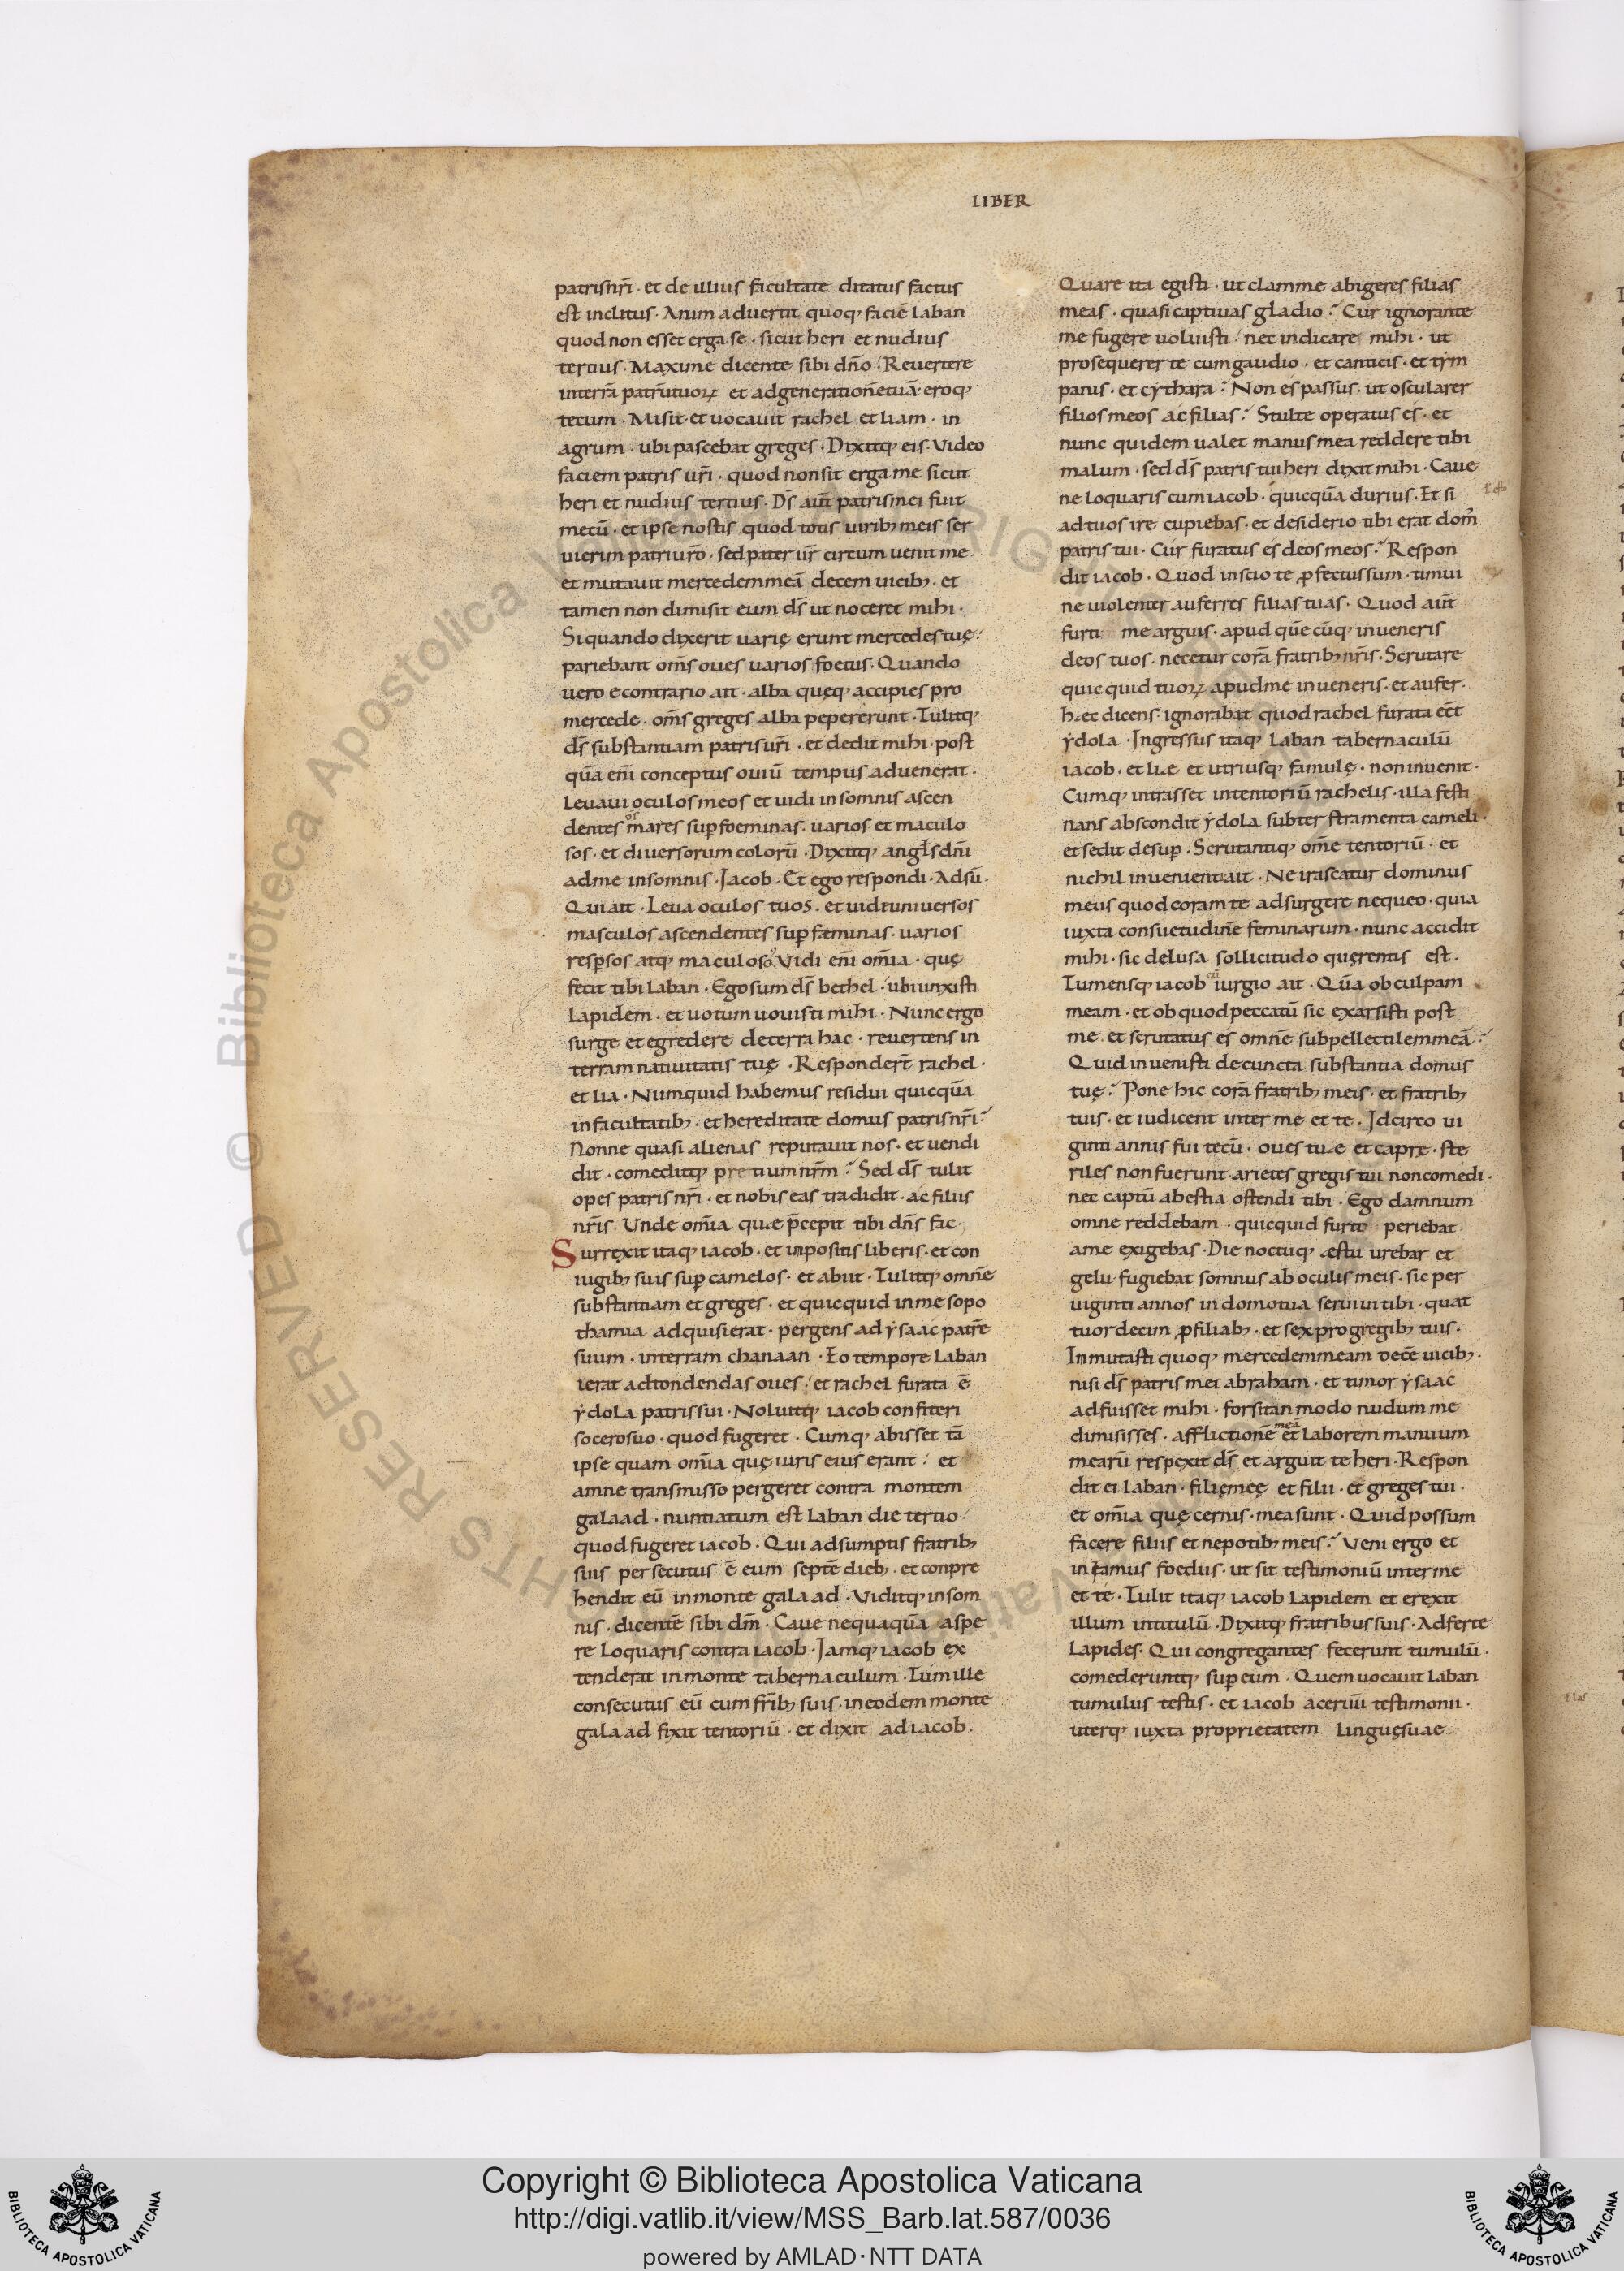 LIBER
patris nr̄i · et de illius facultate ditatus factus
est inclitus · Animadvertit quoq; faciē laban
quod non esset erga se · sicut heri et nudius
tertius · Maxime dicente sibi dn̄o · Revertere
in terrā patrū tuoꝝ et ad generationē tuā · eroq;
tecum · Misit et vocavit rachel et liam · in
agrum · ubi pascebat greges · Dixitq; eis · Video
faciem patris vr̄i · quod non sit erga me sicut
heri et nudius tertius · Ds̄ aut̄ patris mei fuit
mecū · et ipse nostis quod totis virib; meis ser
vierim patri vr̄o · sed pater vr̄ circumvenit me
et mutavit mercedem meā decem vicib; · et
tamen non dimisit eum ds̄ ut noceret mihi ·
Si quando dixerit varię erunt mercedes tuę ·
pariebant om̄s oves varios foetus · Quando
vero e contrario ait · alba quęq; accipies pro
mercede · om̄s greges alba pepererunt · Tulitq;
ds̄ substantiam patris vr̄i · et dedit mihi · post
qūa eni̅ conceptus oviū tempus advenerat ·
Levavi oculos meos et vidi in somnis ascen
dentes mares sup̱ foeminas · varios et maculo
sos · et diversorum colorū · Dixitq; angl̄s dn̄i
ad me in somnis · Jacob · Et ego respondi · Adsū ·
Qui ait · Leva oculos tuos · et vide universos
masculos ascendentes sup̱ fæminas · varios
resp̱sos atq; maculosos · Vidi eni̅ om̄ia · quę
fecit tibi laban · Ego sum ds̄ bethel · ubi unxisti
lapidem · et votum vovisti mihi · Nunc ergo
surge et egredere de terra hac · revertens in
terram nativitatis tuę · Responder̄t rachel ·
et lia · Numquid habemus residui quicqūa
in facultatib; · et hereditate domus patris nr̄i?
Nonne quasi alienas reputavit nos · et vendi
dit · comeditq; pretium nr̄m? Sed ds̄ tulit
opes patris nr̄i · et nobis eas tradidit · ac filiis
nr̄is · Unde om̄ia quæ p̄cepit tibi dn̄s fac ·
Surrexit itaq; iacob · et inpositis liberis · et con
iugib; suis sup̱ camelos · et abiit · Tulitq; omnē
substantiam et greges · et quicquid in mesopo
thamia adquisierat · pergens ad ẏsaac patrē
suum · in terram chanaan · Eo tempore laban
ierat ad tondendas oves · et rachel furata ē
ẏdola patris sui · Noluitq; iacob confiteri
socero suo · quod fugeret · Cumq; abisset tā
ipse quam om̄ia quę iuris eius erant · et
amne transmisso pergeret contra montem
galaad · nuntiatum est laban die tertio
quod fugeret iacob · Qui adsumptis fratrib;
suis persecutus ē eum septē dieb; · et conpre
hendit eū in monte galaad · Viditq; in som
nis · dicentē sibi dn̄m · Cave nequaqūa aspe
re loquaris contra iacob · Jamq; iacob ex
tenderat in monte tabernaculum · Tum ille
consecutus eū cum fr̄ib; suis · in eodem monte
galaad fixit tentoriū · et dixit ad iacob ·
Quare ita egisti · ut clam me abigeres filias
meas · quasi captivas gladio? Cur ignorante
me fugere voluisti · nec indicare mihi · ut
prosequerer te cum gaudio · et canticis · et tẏm
panis · et cẏthara? Non es passus · ut oscularer
filios meos ac filias? Stulte operatus es · et
nunc quidem valet manus mea reddere tibi
malum · sed ds̄ patris tui heri dixit mihi · Cave
ne loquaris cum iacob · quicqūa durius · Et si
ad tuos ire cupiebas · et desiderio tibi erat dom̄
patris tui · Cur furatus es deos meos? Respon
dit iacob · Quod inscio te ꝓfectus sum · timui
ne violenter auferres filias tuas · Quod aut̄
furti me arguis · apud quē cūq; inveneris
deos tuos · necetur corā fratrib; nr̄is · Scrutare
quicquid tuoꝝ apud me inveneris · et aufer ·
hæc dicens ignorabat quod rachel furata eēt
ẏdola · Ingressus itaq; laban tabernaculū
iacob · et liæ et utriusq; famulę · non invenit ·
Cumq; intrasset in tentoriū rachelis · illa festi
nans abscondit ẏdola subter stramenta cameli ·
et sedit desup̱ · Scrutantiq; om̄e tentoriū · et
nichil invenienti ait · Ne irascatur dominus
meus quod coram te adsurgere nequeo · quia
iuxta consuetudinē feminarum · nunc accidit
mihi · sic delusa sollicitudo quęrentis est ·
Tumensq; iacob cū iurgio ait · Qūa ob culpam
meam · et ob quod peccatū sic exarsisti post
me · et scrutatus es omnē subpellectilem meā?
Quid invenisti de cuncta substantia domus
tuę? Pone hic corā fratrib; meis · et fratrib;
tuis · et iudicent inter me et te · Idcirco vi
ginti annis fui tecū · oves tuæ et caprę · ste
riles non fuerunt · arietes gregis tui non comedi ·
nec captū a bestia ostendi tibi · Ego damnum
omne reddebam · quicquid furto periebat
a me exigebas · Die noctuq; æstu urebar et
gelu · fugiebat somnus ab oculis meis · sic per
viginti annos in domo tua servivi tibi · quat
tuordecim ꝓ filiab; · et sex pro gregib; tuis ·
Inmutasti quoq; mercedem meam decē vicib; ·
nisi ds̄ patris mei abraham · et timor ẏsaac
adfuisset mihi · forsitan modo nudum me
dimisisses · afflictionē meā et laborem manuum
mearū respexit ds̄ et arguit te heri · Respon
dit ei laban · filię meę et filii · et greges tui ·
et om̄ia quę cernis · mea sunt · Quid possum
facere filiis et nepotib; meis? Veni ergo et
ineamus foedus · ut sit testimoniū inter me
et te · Tulit itaq; iacob lapidem et erexit
illum in titulū · Dixitq; fratribus suis · Adferte
lapides · Qui congregantes fecerunt tumulū ·
comederuntq; sup̱ eum · Quem vocavit laban
tumulus testis · et iacob acervū testimonii ·
uterq; iuxta proprietatem linguę suae
Copyright © Biblioteca Apostolica Vaticana
http://digi.vatlib.it/view/MSS_Barb.lat.587/0036
powered by AMLAD·NTT DATA
BIBLIOTECA APOSTOLICA VATICANA
BIBLIOTECA APOSTOLICA VATICANA